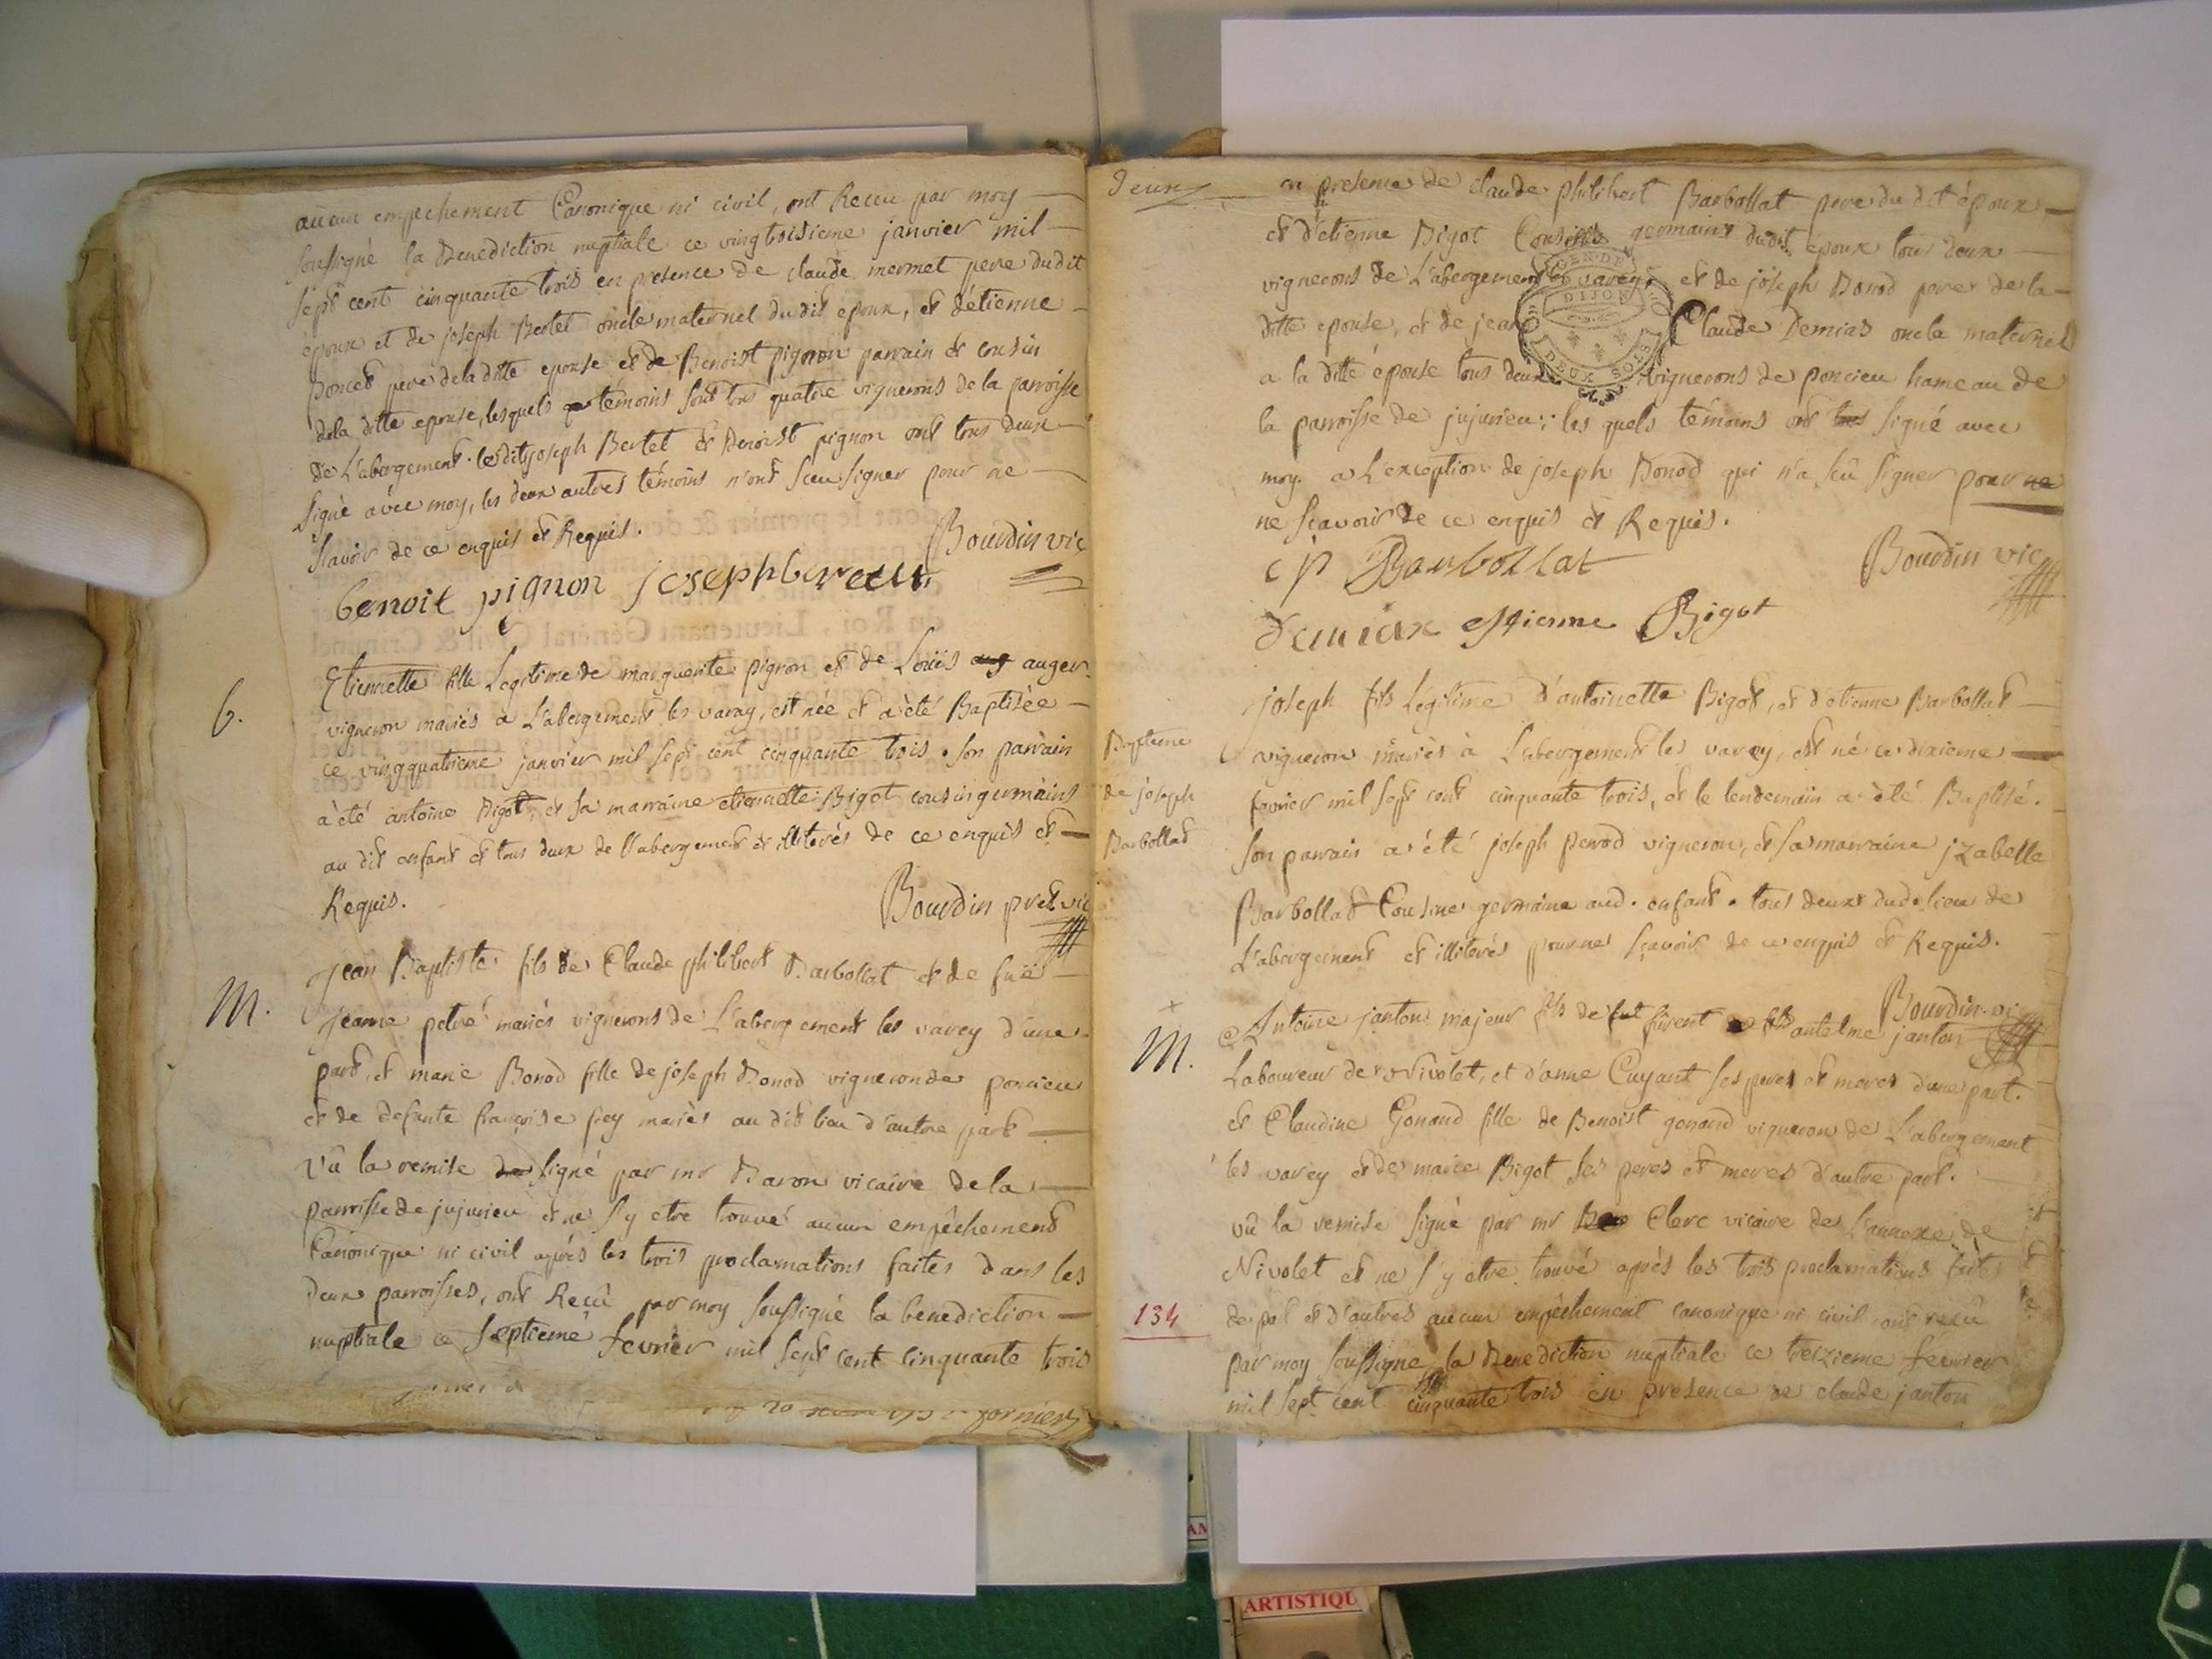 aucun empechement Canonique ni civil, ont Receu par moy
soussigné la Benediction nuptiale ce vingtroisieme janvier mil
sept cent cinquante trois en presence de claude mermet pere dudit
époux et de joseph Bertet oncle maternel du dit epoux, et d'étienne
poncet pere dela ditte epouse et de Benoist pignon parrain et cousin
dela ditte epouse, lesquels témoins sont tous quatre vignerons de la parroisse
de L'abergement. lesdits joseph Bertet et Benoist pignon ont tous deux
signé avec moy, les deux autres témoins n'ont sceu signer pour ne
scavoir de ce enquis et Requis.
Bourdin vic
benoit pignon joseph
b.
Etiennette fille Legitime de marguerite pignon et de Loüis aug auger
vigneron mariés à L'abergement les varay, est née et a été Baptisée
ce vingquatrieme janvier mil sept cent cinquante trois. son parrain
à été antoine Bigot, et sa marraine etiennette Bigot cousin germains
au dit enfant et tous deux de l'abergement et illiterés de ce enquis et
Requis.
Bourdin pret. vic
M.
Jean Baptiste fils de Claude philibert Barbollat et de fuë
jeanne petré mariés vignerons de L'abergement les varey d'une
part, et marie Bonod fille de joseph Bonod vigneron de poncieu
et de defunte françoise fey mariés au dit lieu d'autre part
Vû la remise de signé par mr Baron vicaire dela
parroisse de jujurieu et ne s'y etre trouvé aucun empêchement
Canonique ni civil aprés les trois proclamations faites dans les
deux parroisses, ont Reçû par moy soussigné la benediction
nuptiale ce septieme fevrier mil sept cent cinquante trois
Deux
en presence de claude philibert Barbollat pere du dit époux
et d'étienne Bigot Cousins germains dudit époux tous deux
vignerons de L'abergement les varey, et de joseph Bonod pere de la
ditte epouse, et de jean Claude Demias oncle maternel
a la ditte épouse tous deux vignerons de poncieu hameau de
la parroisse de jujurieu; les quels témoins ont tous signé avec
moy. a L'exception de joseph Bonod qui n'a sçû signer pour ne
ne scavoir de ce enquis et Requis.
DIJON
DEUX SOLS
cp Barbollat
Bourdin vic
demiax estienne Bigot
Bapteme
de joseph
Barbollat
joseph fils Legitime d'antoinette Bigot, et d'etienne Barbollat
vigneron mariés à L'abergement les varey, est né ce dixieme
fevrier mil sept cent cinquante trois, et le lendemain a été Baptisé.
son parrain a été joseph penod vigneron, et sa marraine jzabelle
Barbollat Cousine germaine aud. enfant. tous deux dud. lieu de
L'abergement et illiterés pour ne sçavoir de ce enquis et Requis.
Bourdin. vi
M.
Antoine janton majeur fils de fut furent antelme janton
Laboureur de Nivolet, et d'anne Cuyant ses peres et meres d'une part.
et Claudine Gonand fille de Benoist gonand vigneron de L'abergement
les varey et de marie Bigot ses peres et meres d'autre part.
vû la remise signé par mr Clerc vicaire de L'annexe de
Nivolet et ne s'y etre trouvé après les trois proclamations faites
134
de part et d'autres aucun empêchement canonique ni civil ont reçu
par moy soussigné la Benediction nuptiale ce treizieme fevrier
mil sept cent cinquante trois en presence de claude janton
ARTISTIQU